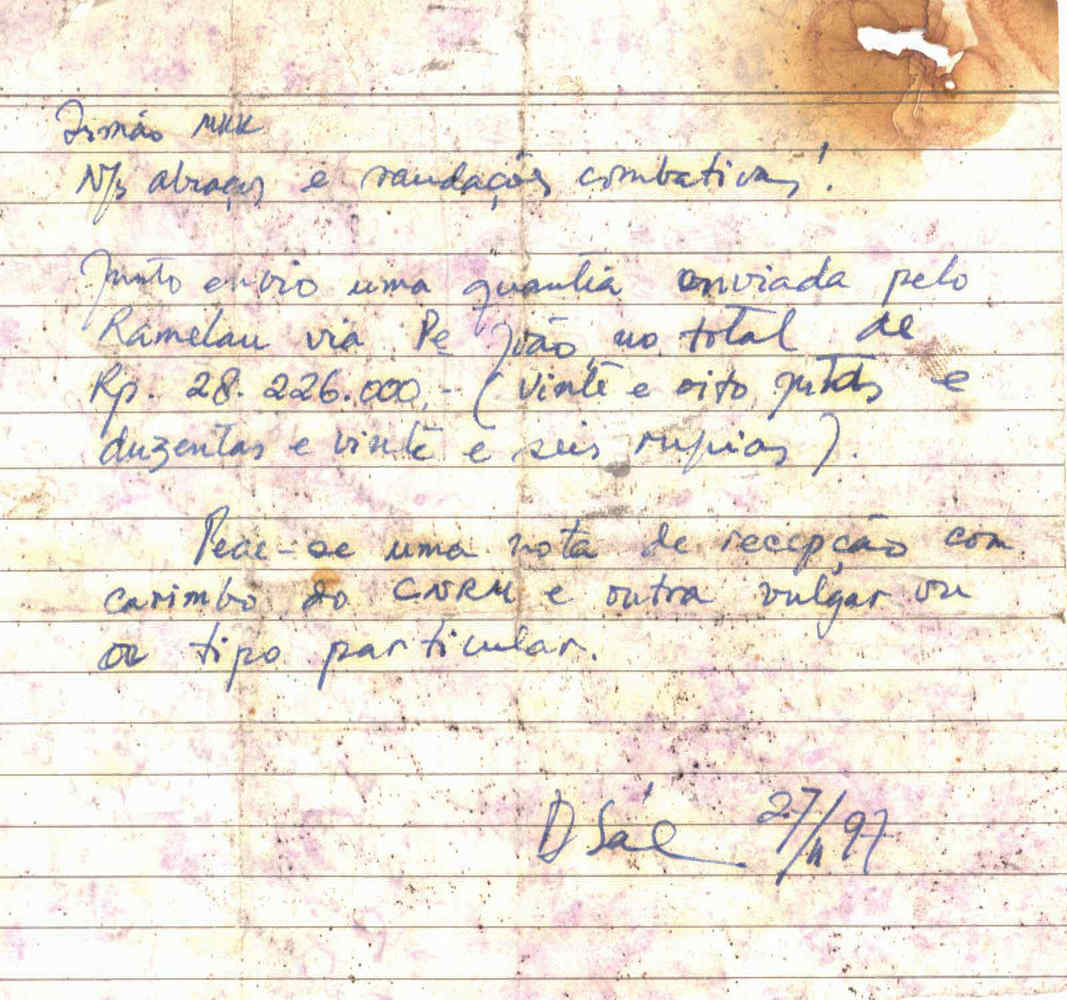 Irmão MKK
N/s abraços e saudações combativas!
Junto envio uma quantia enviada pelo
Ramelau via Pe João, no total de
Rp. 28.226.000,- (vinte e oito jutas e
duzentas e vinte e seis rupias).
Pede-se uma nota de recepção com
carimbo do CNRM e outra vulgar ou
ou tipo particular.
D Sá 27/11 97